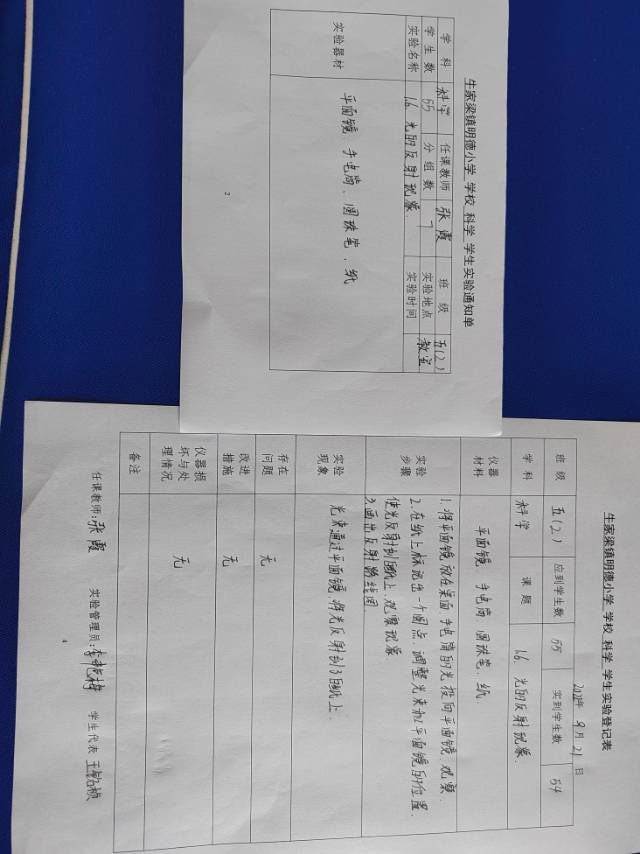 牛家梁镇明德小学 学校 科学 学生实验通知单
学 科 科学 任课教师 张霞 班 级 五(2)
学 生 数 55 分 组 数 7 实验地点 教室
实验名称 1.6 光的反射现象 实验时间
实验器材 平面镜、手电筒、圆珠笔、纸
牛家梁镇明德小学 学校 科学 学生实验登记表
9月21日
班 级 五(2) 应到学生数 55 实到学生数 54
学 科 科学 课 题 1.6 光的反射现象.
仪器材料 平面镜 手电筒 圆珠笔、纸
实验步骤 1.将平面镜放在桌面 手电筒的光投向平面镜、观察.
2.在纸上标记出一个圆点、调整光束和平面镜的位置.
使光反射到纸上、观察现象
3.画出反射路线图.
实验现象 光束通过平面镜,将光反射到了白纸上.
存在问题 无
改进措施 无
仪器损坏与处理情况 无
备注
任课教师:张霞 实验管理员: 学生代表